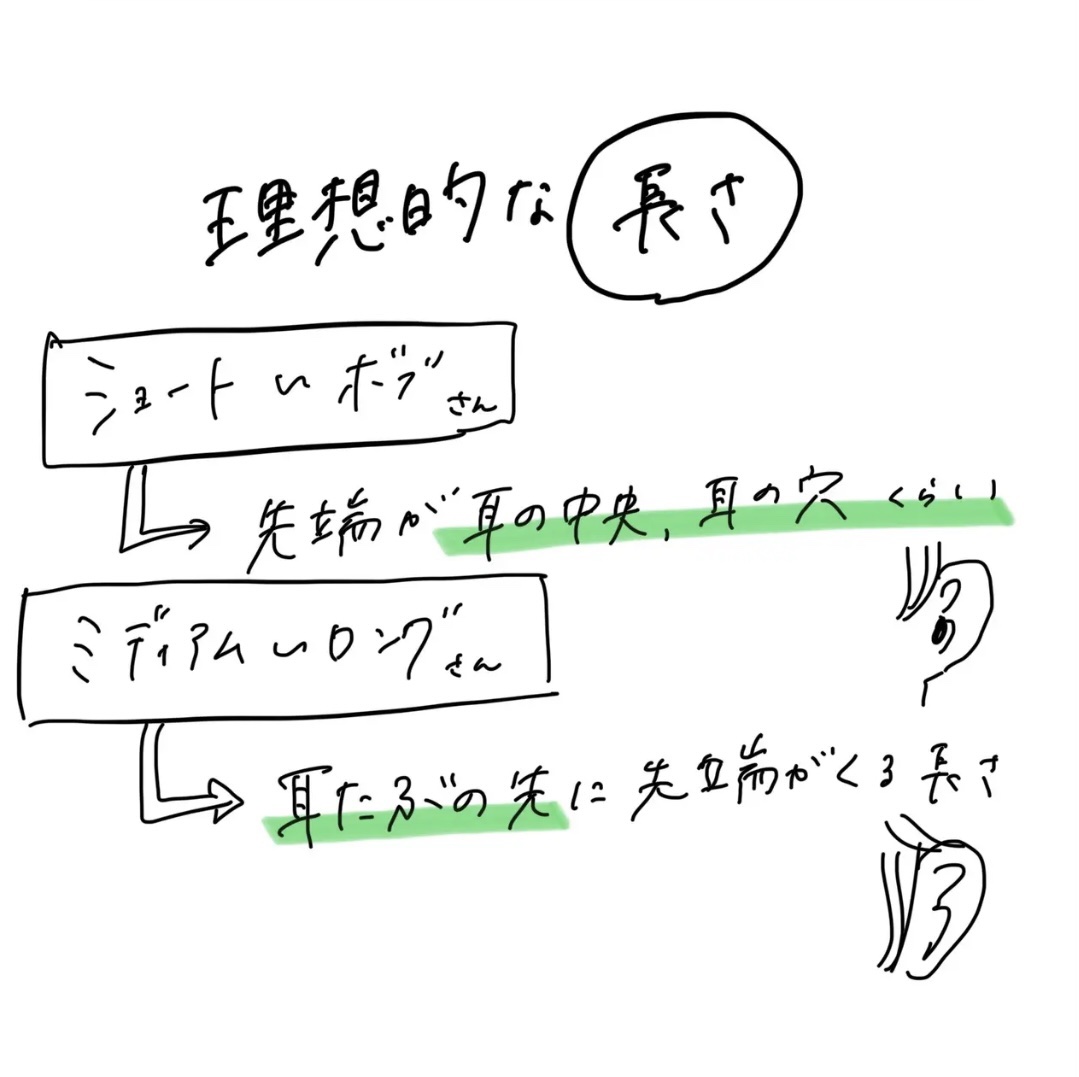 理想的な長さ
ショート〜ボブさん
先端が耳の中央、耳の穴くらい
ミディアム〜ロングさん
耳たぶの先に先端がくる長さ